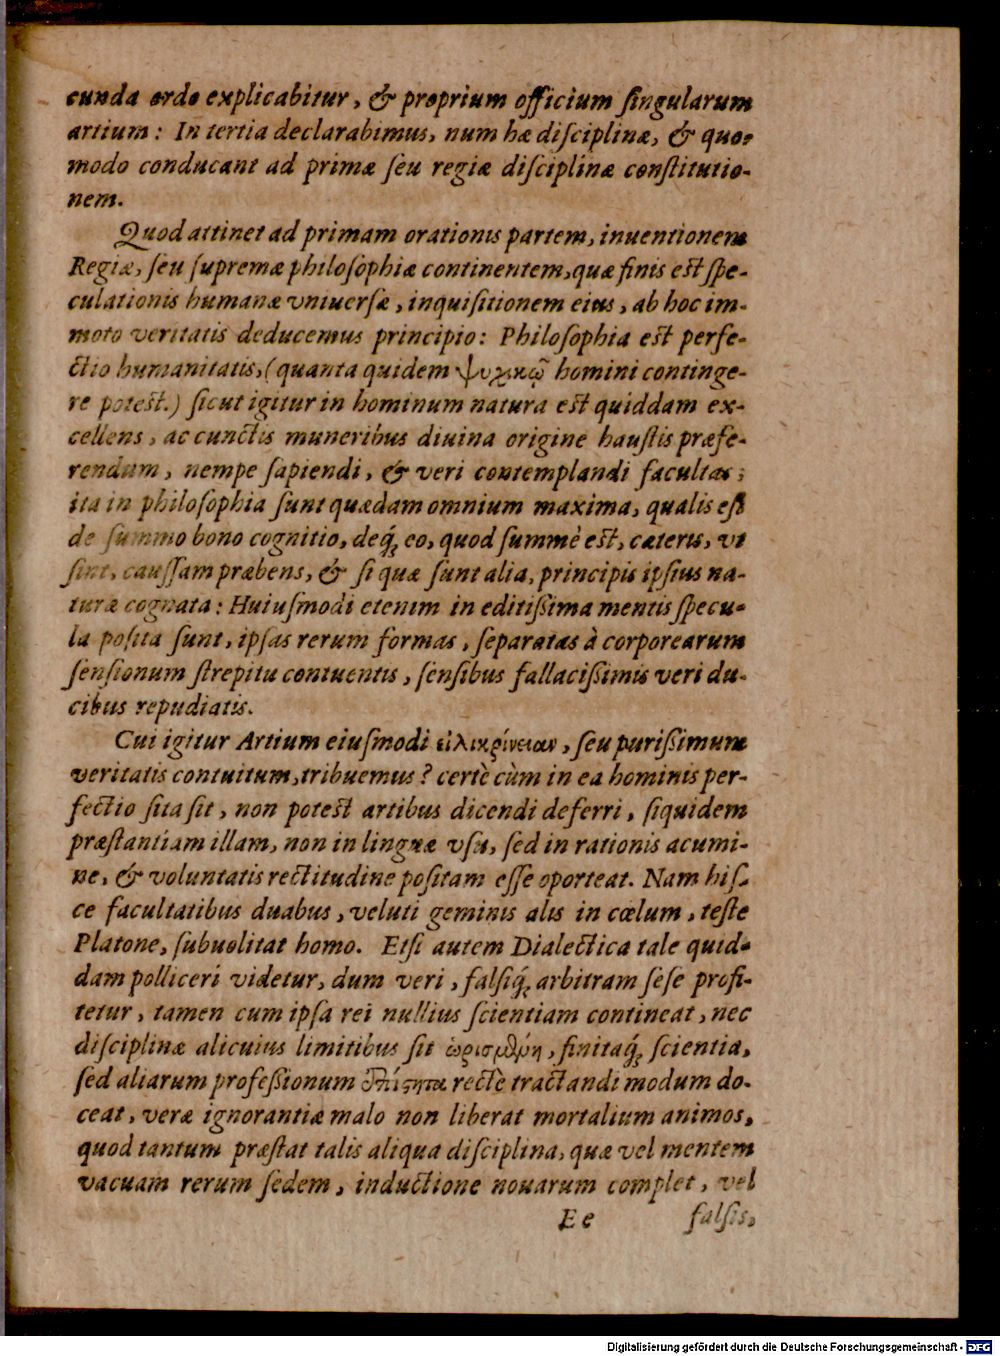 cunda ordo explicabitur, & proprium officium ſingularum
artium: In tertia declarabimus, num hæ diſciplinæ, & quo-
modo conducant ad primæ ſeu regiæ diſciplinæ conſtitutio-
nem.
Quod attinet ad primam orationis partem, inuentionem
Regiæ, ſeu ſupremæ philoſophiæ continentem, quæ finis eſt ſpe-
culationis humanæ vniuerſæ, inquiſitionem eius, ab hoc im-
moto veritatis deducemus principio: Philoſophia eſt perfe-
ctio humanitatis, (quanta quidem ψυχικῷ homini continge-
re poteſt.) ſicut igitur in hominum natura eſt quiddam ex-
cellens, ac cunctis muneribus diuina origine hauſtis præfe-
rendum, nempe ſapiendi, & veri contemplandi facultas;
ita in philoſophia ſunt quædam omnium maxima, qualis eſt
de ſummo bono cognitio, deq́; eo, quod ſummè eſt, cæteris, vt
ſint, cauſſam præbens, & ſi quæ ſunt alia, principis ipſius na-
turæ cognata: Huiuſmodi etenim in editiſsima mentis ſpecu-
la poſita ſunt, ipſas rerum formas, ſeparatas à corporearum
ſenſionum ſtrepitu contuentis, ſenſibus fallaciſsimis veri du-
cibus repudiatis.
Cui igitur Artium eiuſmodi εἰλικρίνειαν, ſeu puriſsimum
veritatis contuitum, tribuemus? certè cùm in ea hominis per-
fectio ſita ſit, non poteſt artibus dicendi deferri, ſiquidem
præſtantiam illam, non in linguæ vſu, ſed in rationis acumi-
ne, & voluntatis rectitudine poſitam eſſe oporteat. Nam hiſ-
ce facultatibus duabus, veluti geminis alis in cœlum, teſte
Platone, ſubuolitat homo. Etſi autem Dialectica tale quid-
dam polliceri videtur, dum veri, falſiq́; arbitram ſeſe profi-
tetur, tamen cum ipſa rei nullius ſcientiam contineat, nec
diſciplinæ alicuius limitibus ſit ὡρισμένη, finitaq́; ſcientia,
ſed aliarum profeſsionum rectè tractandi modum do-
ceat, veræ ignorantiæ malo non liberat mortalium animos,
quod tantum præſtat talis aliqua diſciplina, quæ vel mentem
vacuam rerum ſedem, inductione nouarum complet, vel
Ee falſis,
Digitalisierung gefördert durch die Deutsche Forschungsgemeinschaft - DFG